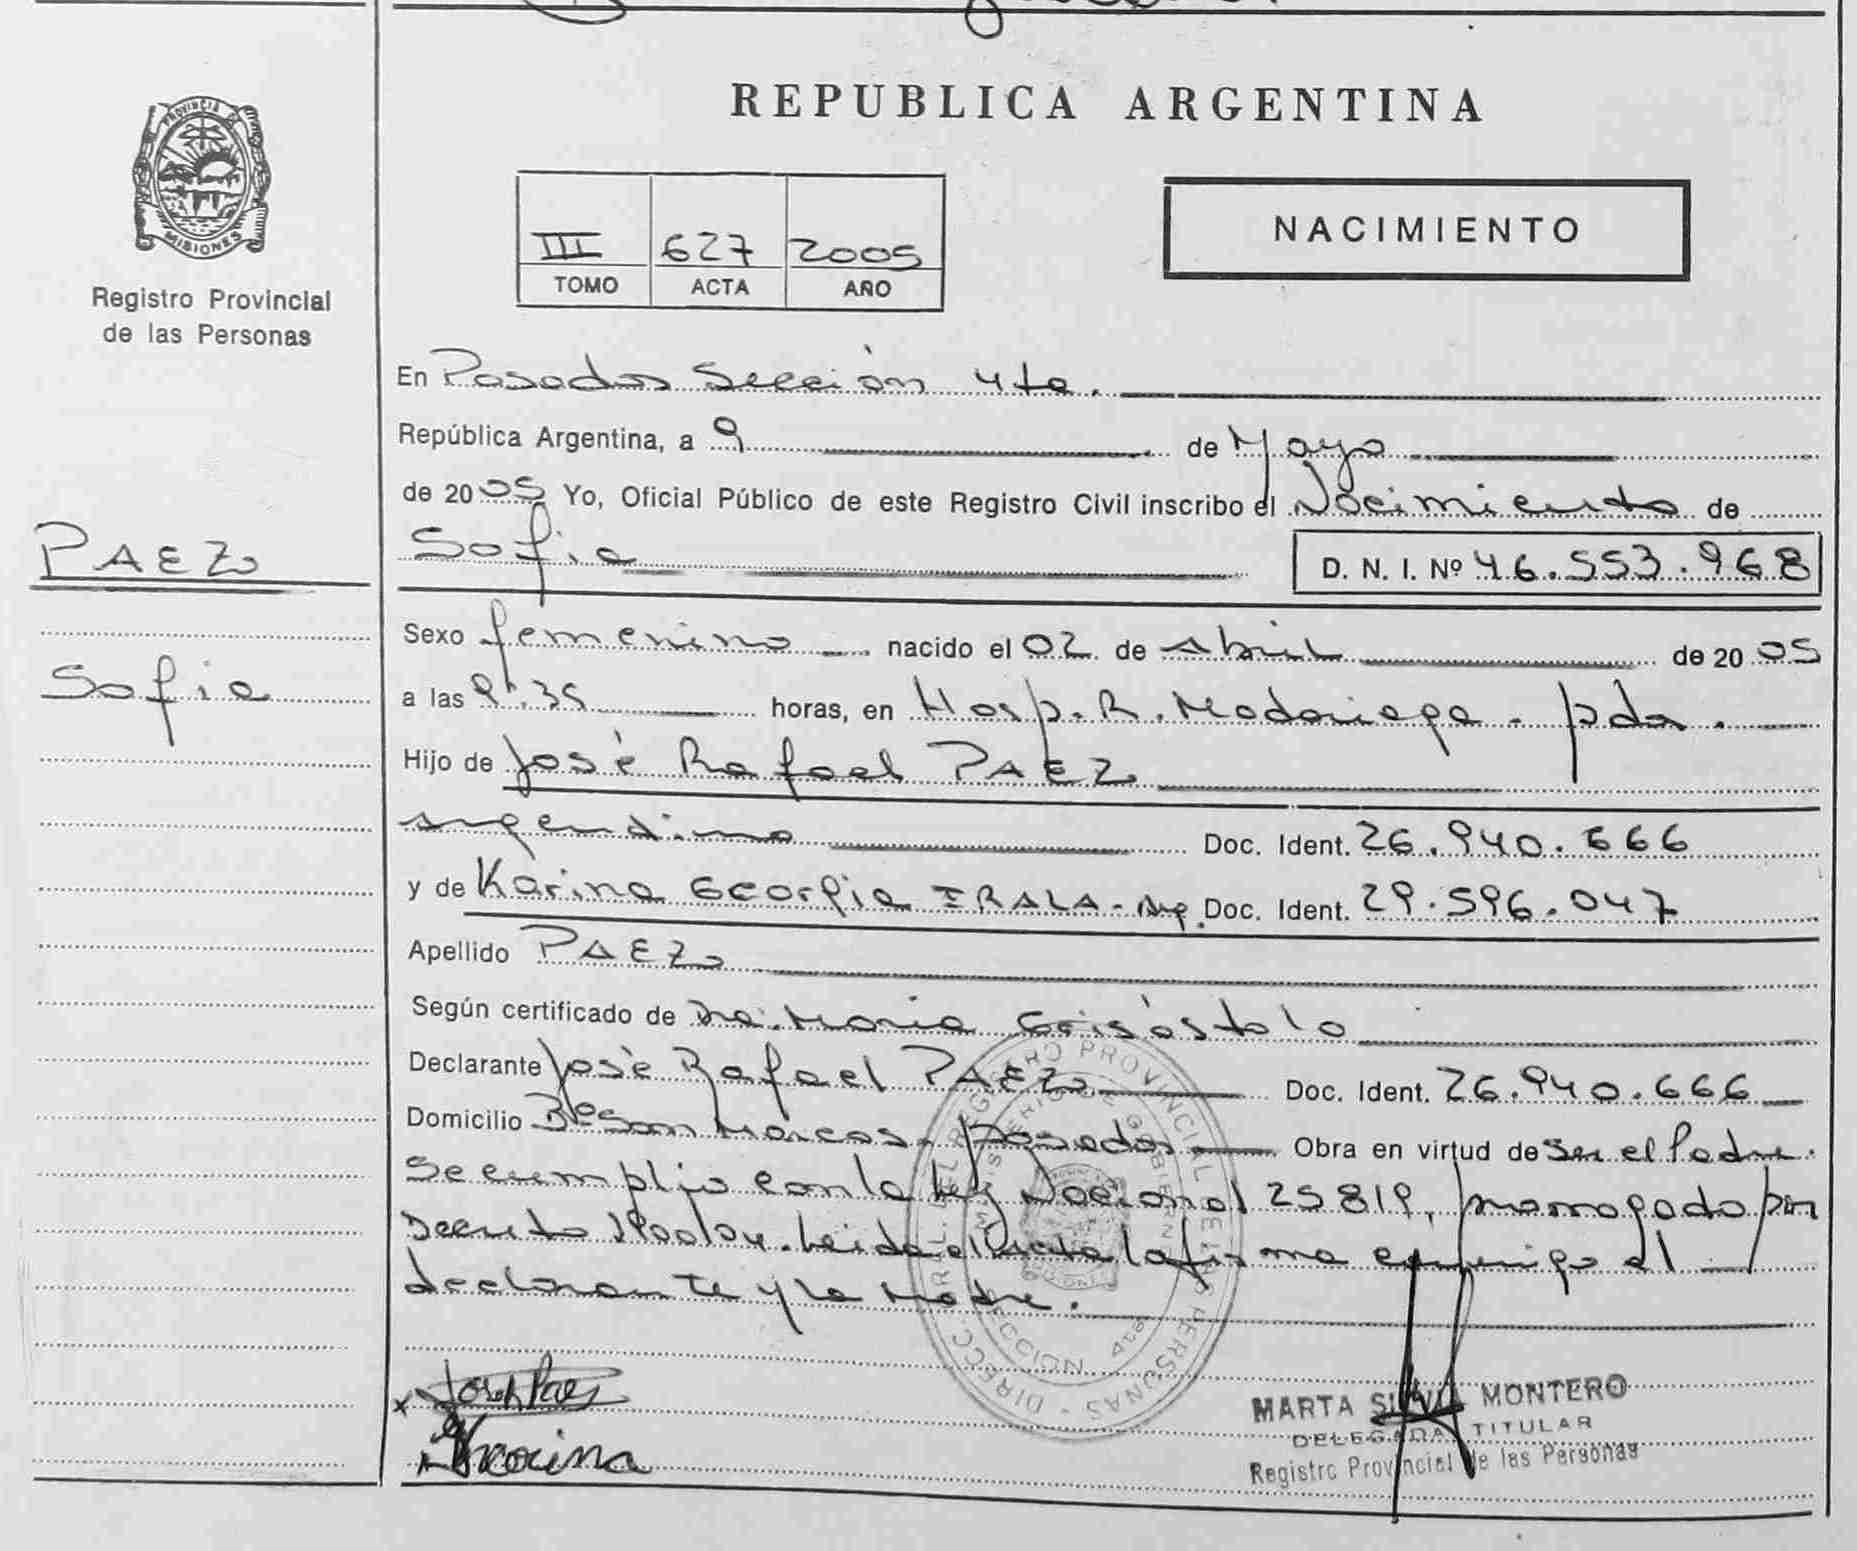 PROVINCIA DE
MISIONES
Registro Provincial
de las Personas
PAEZ
Sofia
REPUBLICA ARGENTINA
III 627 2005
TOMO ACTA AÑO
NACIMIENTO
En Posadas Sección 4ta.
República Argentina, a 9 de Mayo
de 2005 Yo, Oficial Público de este Registro Civil inscribo el Nacimiento de
Sofia D. N. I. Nº 46.553.968
Sexo femenino nacido el 02 de Abril de 2005
a las 9:35 horas, en Hosp. R. Madariaga - pda.
Hijo de José Rafael PAEZ
argentino Doc. Ident. 26.940.666
y de Karina Georgia IRALA - Arg. Doc. Ident. 29.596.047
Apellido PAEZ
Según certificado de Dra. Maria Grisóstolo
Declarante José Rafael PAEZ Doc. Ident. 26.940.666
Domicilio Bº San Marcos - Posadas Obra en virtud de Ser el Padre.
Se cumplio con la ley Nacional 25819, promogado por
Decreto Leida el Acta la firma conmigo el
declarante y la Madre.
DIRECC. GRAL. DEL REGISTRO PROVINCIAL DE LAS PERSONAS
MINISTERIO DE GOBIERNO
MISIONES
SECCION 4ta
José Paez
Karina
MARTA SILVIA MONTERO
DELEGADA TITULAR
Registro Provincial de las Personas